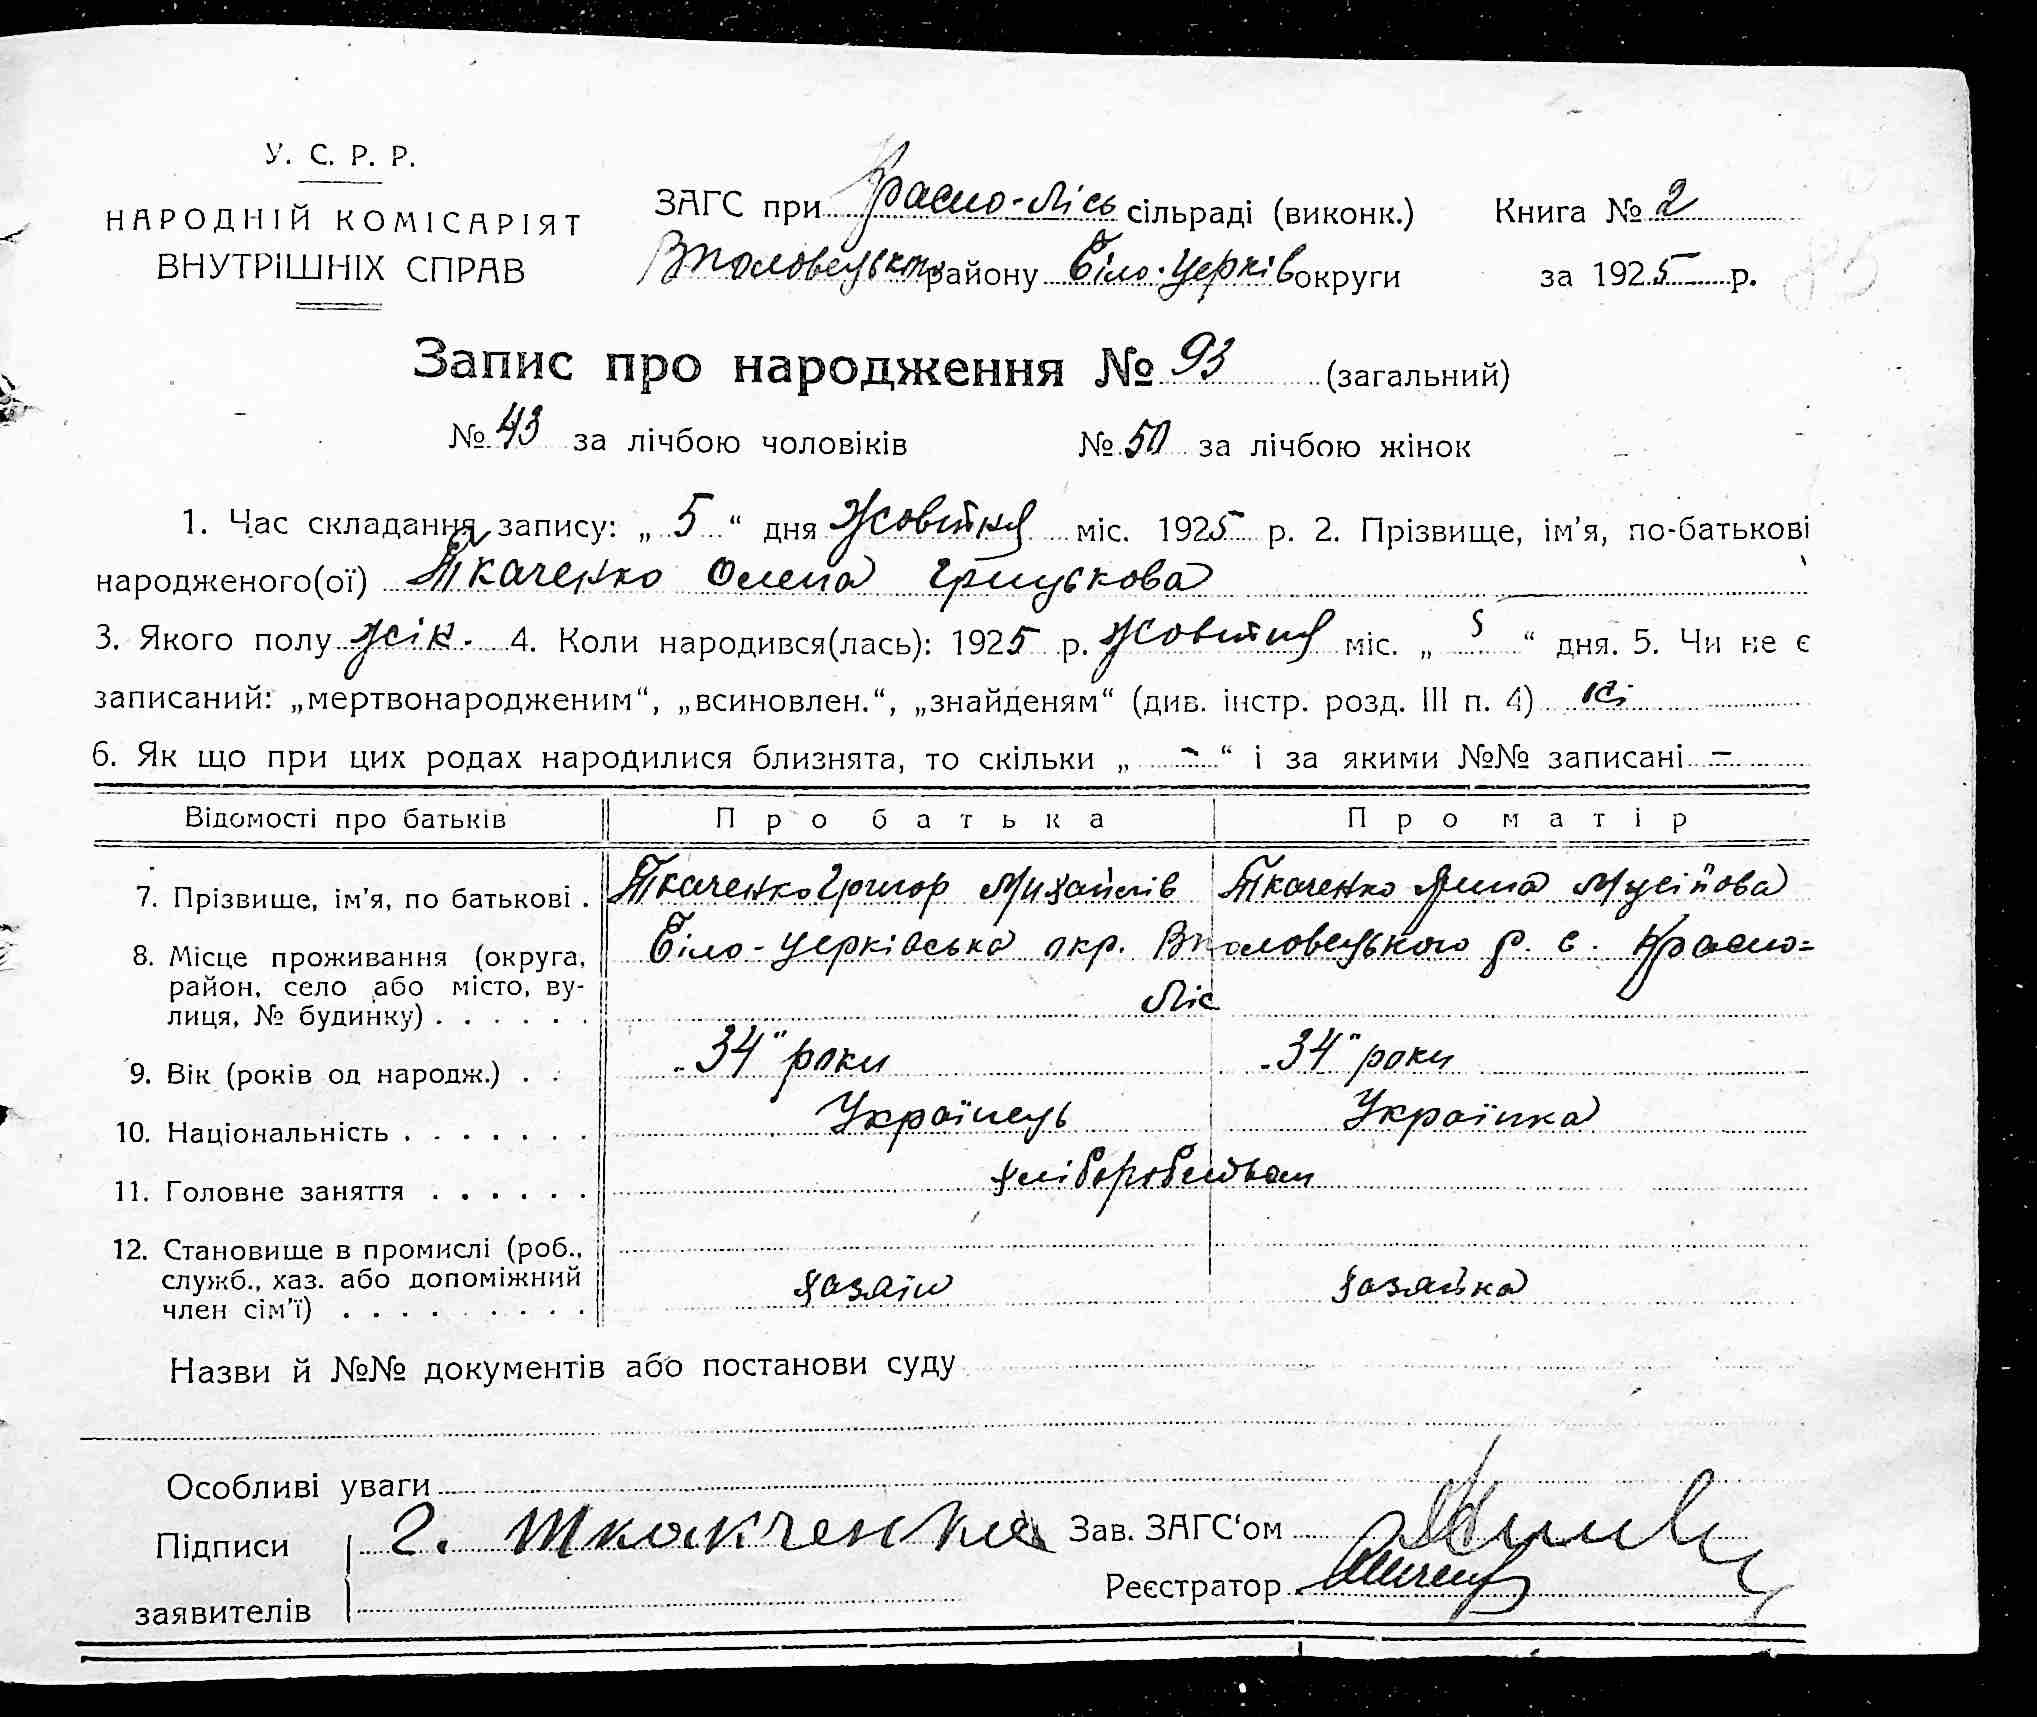 У. С. Р. Р.
НАРОДНІЙ КОМІСАРІЯТ
ВНУТРІШНІХ СПРАВ
ЗАГС при Красно-Лісь сільраді (виконк.) Книга № 2
Вполовецького району Біло-Церків округи за 1925 р.
85
Запис про народження № 93 (загальний)
№ 43 за лічбою чоловіків № 50 за лічбою жінок
1. Час складання запису: „ 5 “ дня Жовтня міс. 1925 р. 2. Прізвище, ім'я, по-батькові
народженого(ої) Ткаченко Олена Грицькова
3. Якого полу жін. 4. Коли народився(лась): 1925 р. Жовтня міс. „ 5 “ дня. 5. Чи не є
записаний: „мертвонародженим“, „всиновлен.“, „знайденям“ (див. інстр. розд. III п. 4) ні
6. Як що при цих родах народилися близнята, то скільки „ - “ і за якими №№ записані -
Відомості про батьків Про батька Про матір
7. Прізвище, ім'я, по батькові . Ткаченко Григор Михайлів Ткаченко Ярина Мусійова
8. Місце проживання (округа, Біло-Церківська окр. Вполовецького р. с. Красно=
район, село або місто, ву-
лиця, № будинку) . . . . . . Ліс
9. Вік (років од народж.) . . „34" роки „34" роки
10. Національність . . . . . . . Українець Українка
11. Головне заняття . . . . . . хліборобством
12. Становище в промислі (роб.,
служб., хаз. або допоміжний хазяїн хазяйка
член сім'ї) . . . . . . . . .
Назви й №№ документів або постанови суду
Особливі уваги
Підписи Г. Ткакченко Зав. ЗАГС'ом
Реєстратор
заявителів